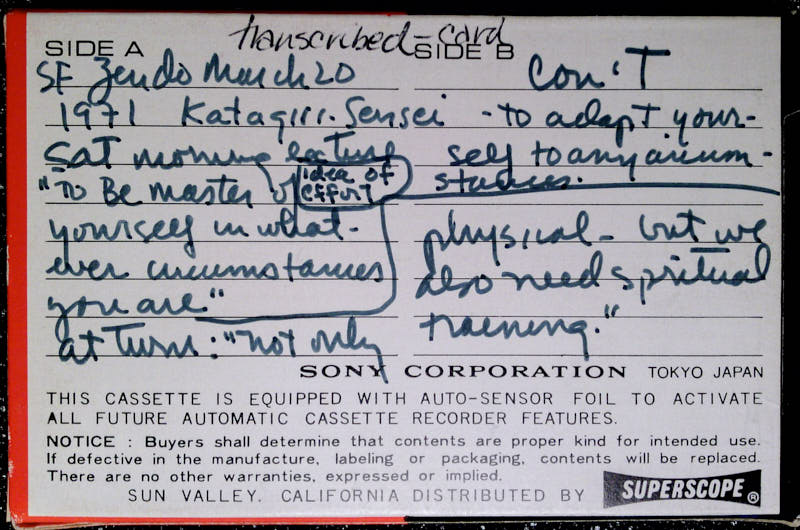 transcribed - card
SIDE A
SF Zendo March 20
1971 Katagiri. Sensei
Sat morning lecture
idea of
effort
"To Be master of
yourself in what-
ever circumstances
you are"
at turn: "not only
SIDE B
Con'T
- to adapt your-
self to any circum-
stances.
physical - but we
also need spritual
training."
SONY CORPORATION TOKYO JAPAN
THIS CASSETTE IS EQUIPPED WITH AUTO-SENSOR FOIL TO ACTIVATE
ALL FUTURE AUTOMATIC CASSETTE RECORDER FEATURES.
NOTICE : Buyers shall determine that contents are proper kind for intended use.
If defective in the manufacture, labeling or packaging, contents will be replaced.
There are no other warranties, expressed or implied.
SUN VALLEY. CALIFORNIA DISTRIBUTED BY SUPERSCOPE ®